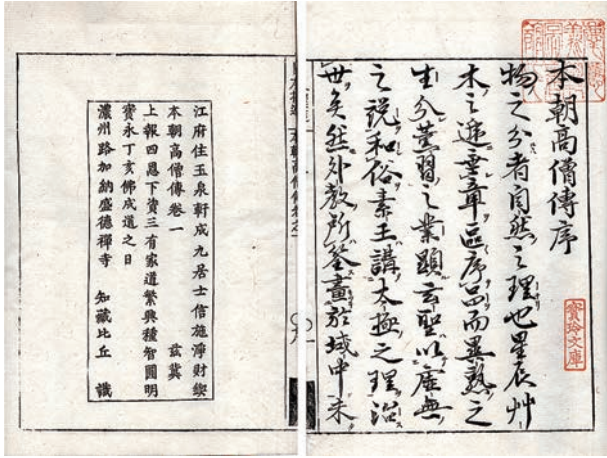 本朝高僧傳序
物之分者自然之理也星辰艸
木之章區序品而異熟之
生分薫習之業顯玄聖以虚無
之説和俗素王講太極之理治
世矣然外教所筌畫於域中未
寶玲文庫
江府住玉泉軒成九居士信施淨財鍥
本朝高僧傳卷一 茲冀
上報四恩下資三有家道繁興種智圓明
寳永丁亥佛成道之日
濃州路加納盛德禪寺 知藏比丘 識